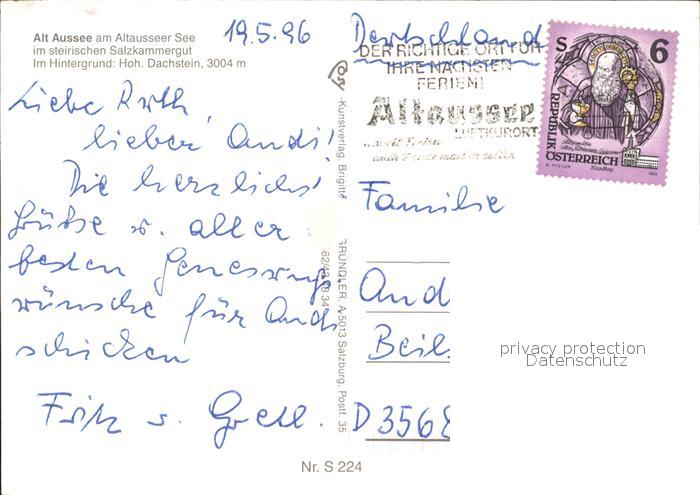 Alt Aussee am Altausseer See
im steirischen Salzkammergut
Im Hintergrund: Hoh. Dachstein, 3004 m
19.5.96
Liebe Ruth,
lieber Andi!
Die herzlichst
Grüße u. aller
besten Genesungs
wünsche für Andi
schicken
Fritz u. Gretl.
Deutschland
DER RICHTIGE ORT FÜR
IHRE NÄCHSTEN
FERIEN!
Altaussee
LUFTKURORT
S 6
REPUBLIK
ÖSTERREICH
Familie
And
Beil
D 3568
Kunstverlag, Brigitte
GRÜNDLER, A-5013 Salzburg, Postf. 35
Nr. S 224
privacy protection
Datenschutz